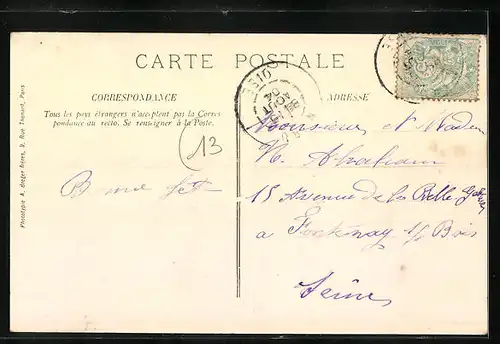 CARTE POSTALE
CORRESPONDANCE
ADRESSE
Tous les pays étrangers n'acceptent pas la Corres
pondance au recto. Se renseigner à la Poste.
13
OISE
AOUT
04
Monsieur et Madam
H. Abraham
Bonne fête
15 Avenue de la Belle Gabrielle
a Fontenay s/s Bois
Seine
Phototypie A. Breger Frères, 9, Rue Thénard, Paris